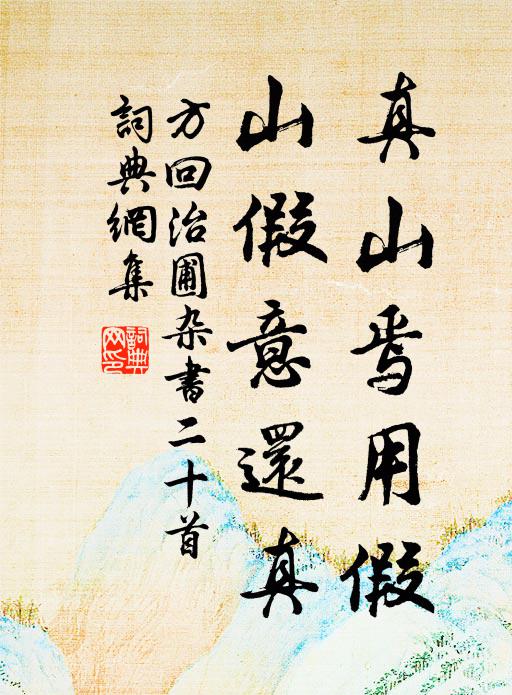 真山焉用假
山假意還真
方回治圃杂書二十首
詞典網集
詞典網印